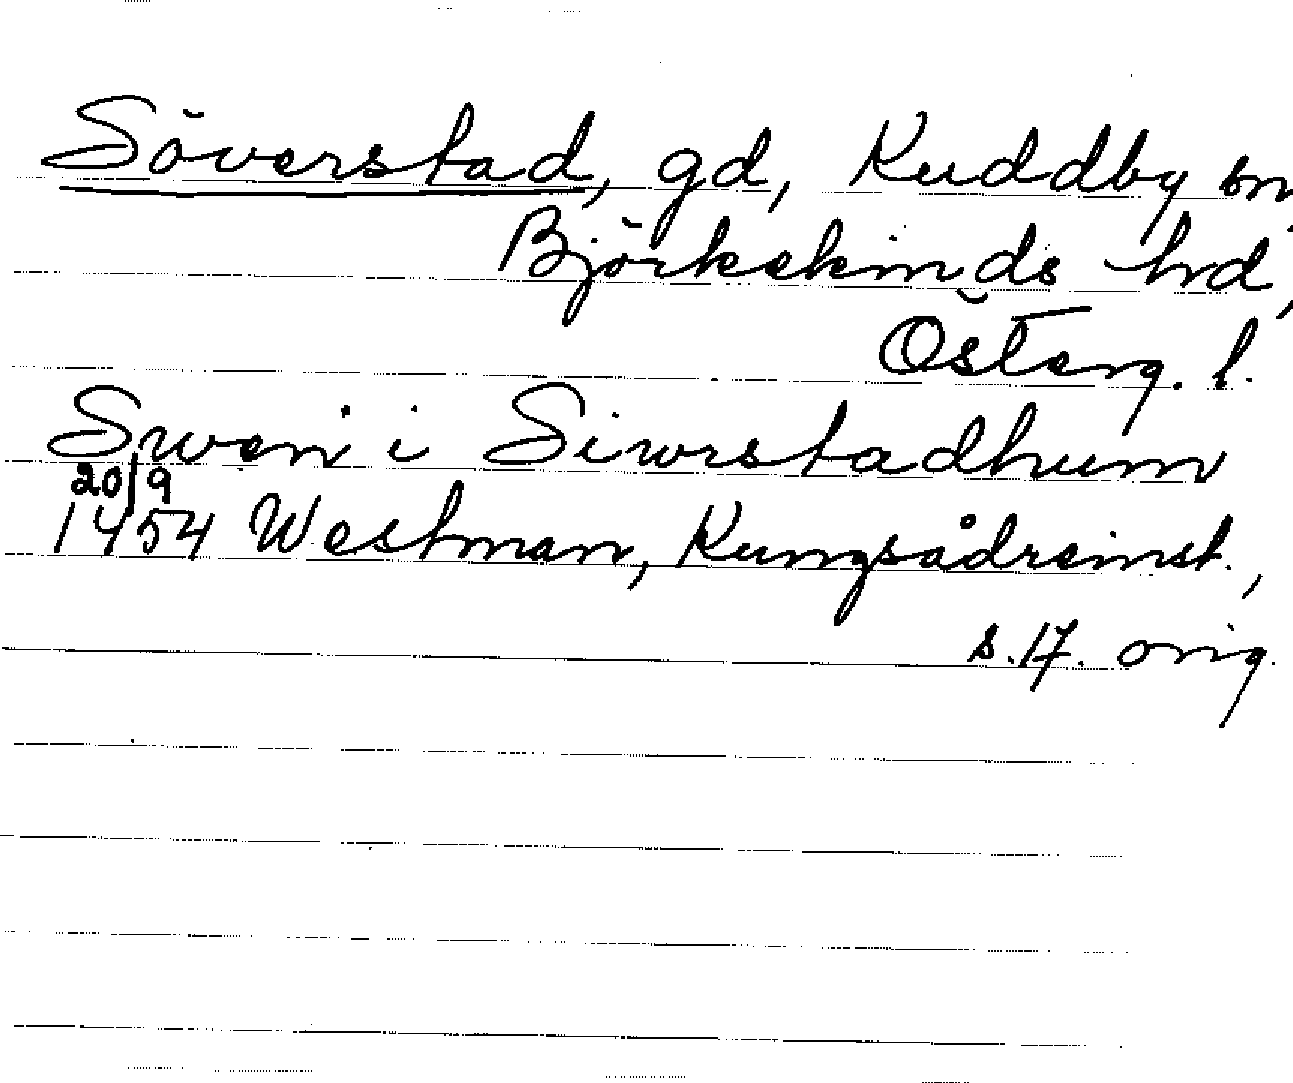 Söverstad, gd, Kuddby sn,
Björkekinds hrd,
Österg. l.
Swen i Siwrstadhum
20/9
1454 Westman, Kungsådreinst.,
s. 17. orig.